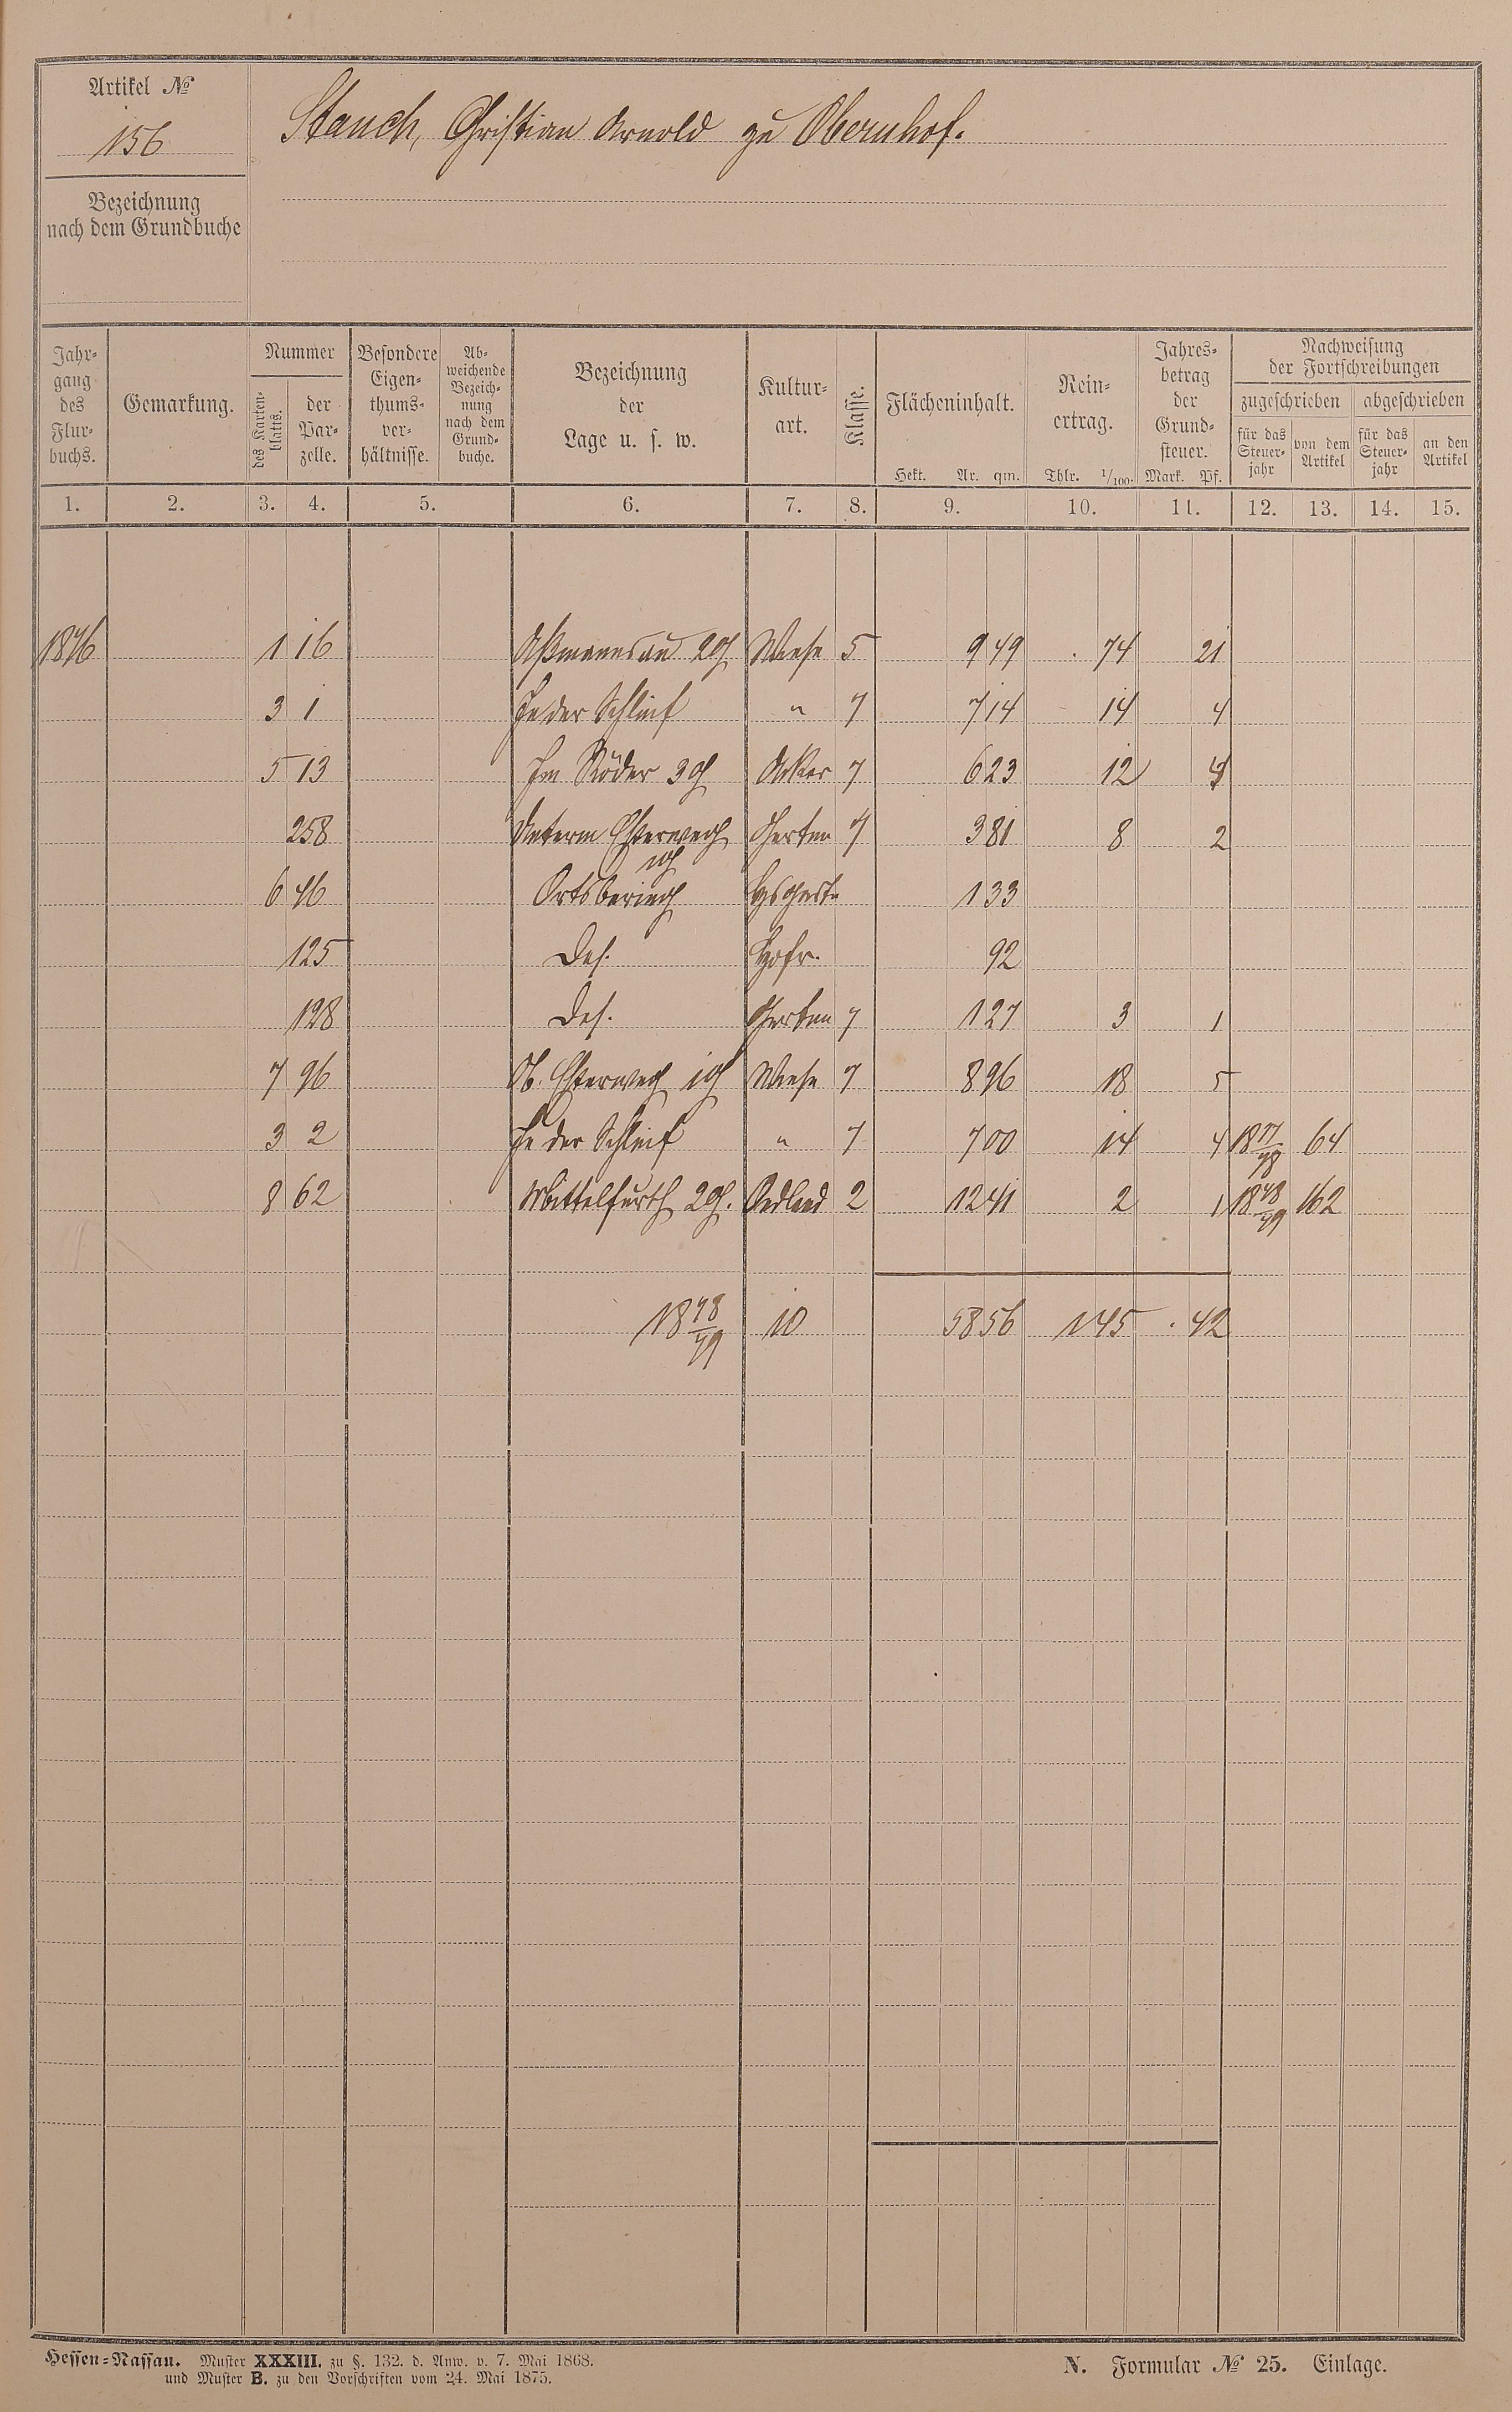 Artikel №
156
Stauch, Christian Arnold zu Obernhof.
Bezeichnung
nach dem Grundbuche
Jahr-
gang
des
Flur-
buchs.
Gemarkung.
Nummer
des Karten-
blatts.
der
Par-
zelle.
Besondere
Eigen-
thums-
ver-
hältnisse.
Ab-
weichende
Bezeich-
nung
nach dem
Grund-
buche.
Bezeichnung
der
Lage u. s. w.
Kultur-
art.
Klasse.
Flächeninhalt.
Hekt. Ar. qm.
Rein-
ertrag.
Thlr. 1/100.
Jahres-
betrag
der
Grund-
steuer.
Mark. Pf.
Nachweisung
der Fortschreibungen
zugeschrieben abgeschrieben
für das
Steuer-
jahr
von dem
Artikel
für das
Steuer-
jahr
an den
Artikel
1. 2. 3. 4. 5. 6. 7. 8. 9. 10. 11. 12. 13. 14. 15.
1876 1 16 Aßmannsau 2g Wiese 5 9 49 . 74 21
3 1 In der Schleif " 7 7 14 14 4
5 13 Im Röder 3g Acker 7 6 23 12 4
258 Unterm Garten 7 3 81 8 2
6 46 Ortsbering Hsgarten 1 33
125 Des. Hofr. 92
128 Des. Garten 7 1 27 3 1
7 96 Ob. 1g Wiese 7 8 96 18 5
3 2 In der Schleif " 7 7 00 14 4 1877/78 64
8 62 Mittelfurth 2g. Oedland 2 12 41 2 1 1878/79 162
1878/79 10 58 56 1 45 . 42
Hessen-Nassau. Muster XXXIII. zu §. 132. d. Anw. v. 7. Mai 1868.
und Muster B. zu den Vorschriften vom 24. Mai 1875.
N. Formular № 25. Einlage.